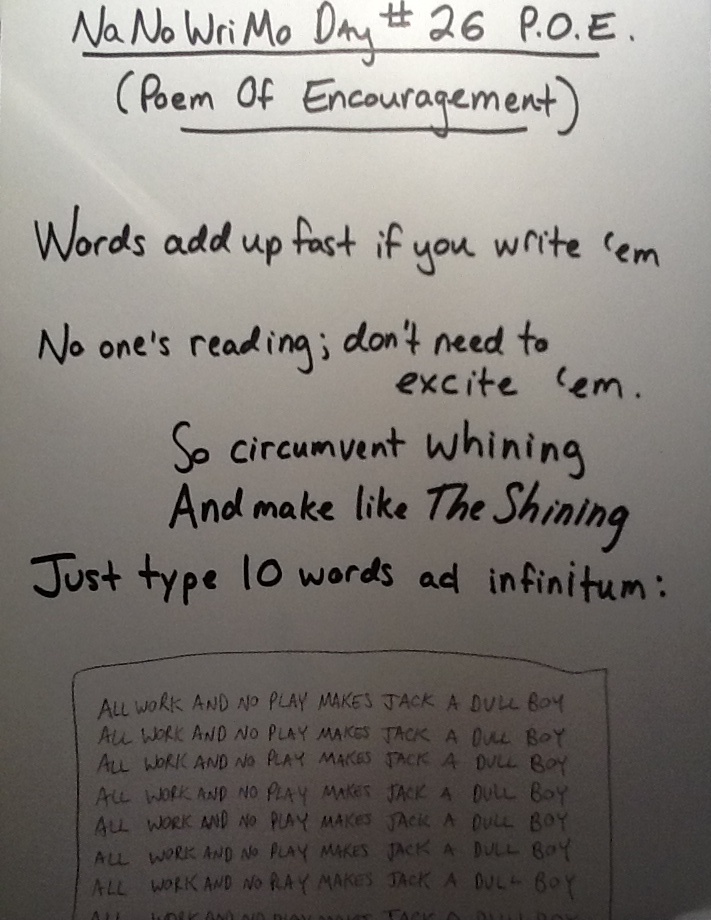 NaNoWriMo Day # 26 P.O.E.
(Poem Of Encouragement)
Words add up fast if you write 'em
No one's reading; don't need to
excite 'em.
So circumvent whining
And make like The Shining
Just type 10 words ad infinitum:
ALL WORK AND NO PLAY MAKES JACK A DULL BOY
ALL WORK AND NO PLAY MAKES JACK A DULL BOY
ALL WORK AND NO PLAY MAKES JACK A DULL BOY
ALL WORK AND NO PLAY MAKES JACK A DULL BOY
ALL WORK AND NO PLAY MAKES JACK A DULL BOY
ALL WORK AND NO PLAY MAKES JACK A DULL BOY
ALL WORK AND NO PLAY MAKES JACK A DULL BOY
ALL WORK AND NO PLAY MAKES JACK A DULL BOY